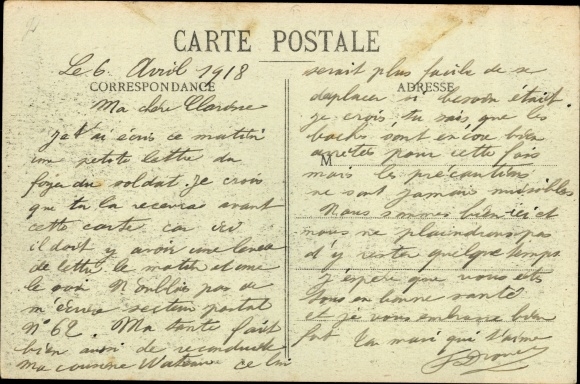 CARTE POSTALE
Le 6 Avril 1918
CORRESPONDANCE
Ma chère
je t'ai écris ce matin
une petite lettre du
foyer du soldat. je crois
que tu la recevras avant
cette carte car ici
il doit y avoir une levée
de lettre le matin et une
le soir N'oublis pas de
m'écrire secteur postal
N° 62. Ma tante fait
bien aussi de reconduire
ma cousine ce lui
ADRESSE
serait plus facile de se
deplacer si besoin était.
je crois tu sais que les
bochs sont encore bien
arretés pour cette fois
M
mais les précautions
ne sont jamais nuisibles
Nous sommes bien ici et
nous ne plaindrons pas
d'y rester quelque temps
j'espère que vous êts
tous en bonne santé
et je vous embrasse bien
fort Ton mari qui t'aime